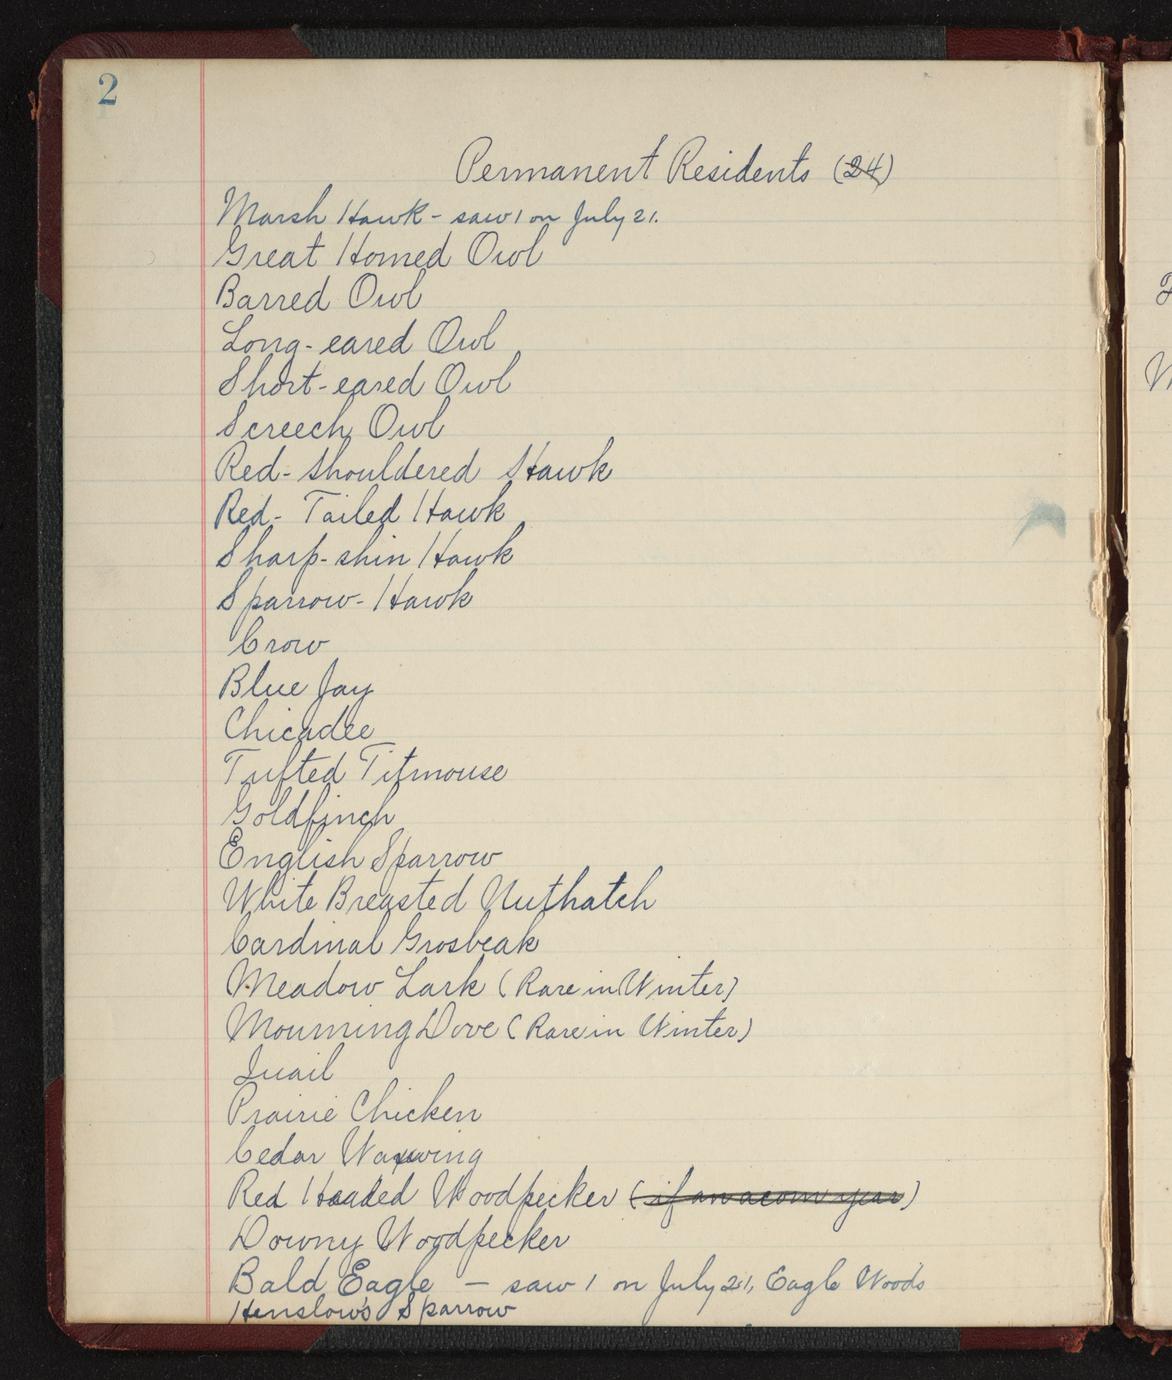 2
Permanent Residents (24)
Marsh Hawk - saw 1 on July 21.
Great Horned Owl
Barred Owl
Long-eared Owl
Short-eared Owl
Screech Owl
Red-shouldered Hawk
Red-Tailed Hawk
Sharp-shin Hawk
Sparrow-Hawk
Crow
Blue Jay
Chicadee
Tufted Titmouse
Goldfinch
English Sparrow
White Breasted Nuthatch
Cardinal Grosbeak
Meadow Lark (Rare in Winter)
Mourning Dove (Rare in Winter)
Quail
Prairie Chicken
Cedar Waxwing
Red Headed Woodpecker (if an acorn year)
Downy Woodpecker
Bald Eagle - saw 1 on July 21, Eagle Woods
Henslow's Sparrow